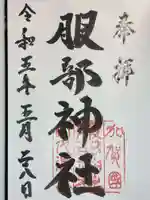 奉拝
加賀國
服部神社
令和五年五月二八日